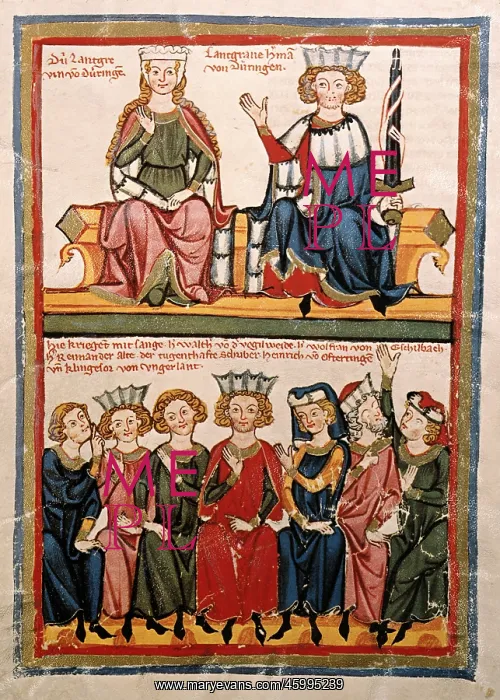 Dú Lantgre
vin vō Dúringe.
Lantgrave h'mā
von Dúringen.
hie krieget mit sange. h' walth' vō d' vogilweide. h' wolfran von Eschilbach
h' Reinander alte. der tugenthafte schriber. heinrich vō Ofteringen.
vn̄ klingesor von vngerlant.
ME
PL
ME
PL
www.maryevans.com/45995239